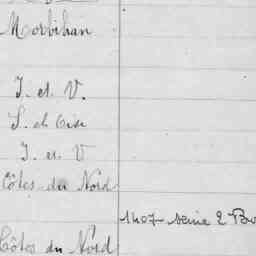 Morbihan
I. et V.
S. et Oise
I. et V
Côtes du Nord
1407 série 2 Bu
Côtes du Nord